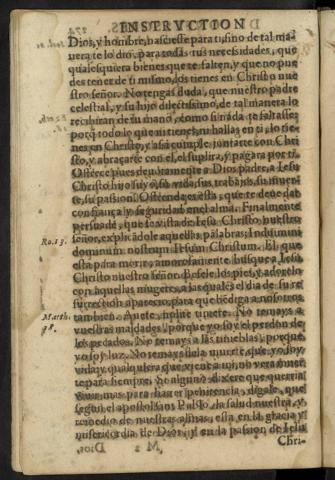 INSTRVCTION
Dios, y hombre, basteste para ti, sino de tal ma
nera te lo dio, para todas tus necesidades, que
qualesquiera bienes que te falten, y que no pue
des tener de ti mismo, los tienes en Christo nue
stro señor. No tengas duda, que nuestro padre
celestial, y su hijo dilectissimo, de tal manera lo
recibiran de tu mano, como si nada te faltasse,
porq̃ todo lo que ni tienes, ni hallas en ti, lo tie-
nes en Christo, y assi cumple juntarte con Chri
sto, y abraçarte con el, el suplira, y pagara por ti.
Ofrece pues deuotamente a Dios padre, a Iesu
Christo hijo suyo, su vida, sus trabajos, su muer
te, su passion. Ofrecenda es esta, que te deue dar
confiança y seguridad en el alma. Finalmente
persuade, que se vista de Iesu Christo nuestro
señor, explicãdole aquellas palabras; Induimini
Ro. 13.
dominum nostrum Iesum Christum. El que
esta para morir, amorosamente busque a Iesu
Christo nuestro señor. Bese los pies, y adorelo
con aquellas mugeres, a las quales el dia de su re
surrection aparecio, para que bẽdiga a nosotros
Matth.
28.
tambien. Auete, No temays a
vuestras maldades, porque yo soy el perdon de
los pecados. No temays a las tinieblas, porque
yo soy luz. No temays a la muerte, que yo soy
vida, y qualquiera que viene a mi, no vera muer
te para siempre. Si alguno dixere que querria
viuir mas para hazer penitencia, digale, que
segun el apostol san Pablo, la salud nuestra, y
remedio de nuestras almas, esta en la gracia y
misericordia de Dios, y en la passion de Iesu
M 2
Chri-